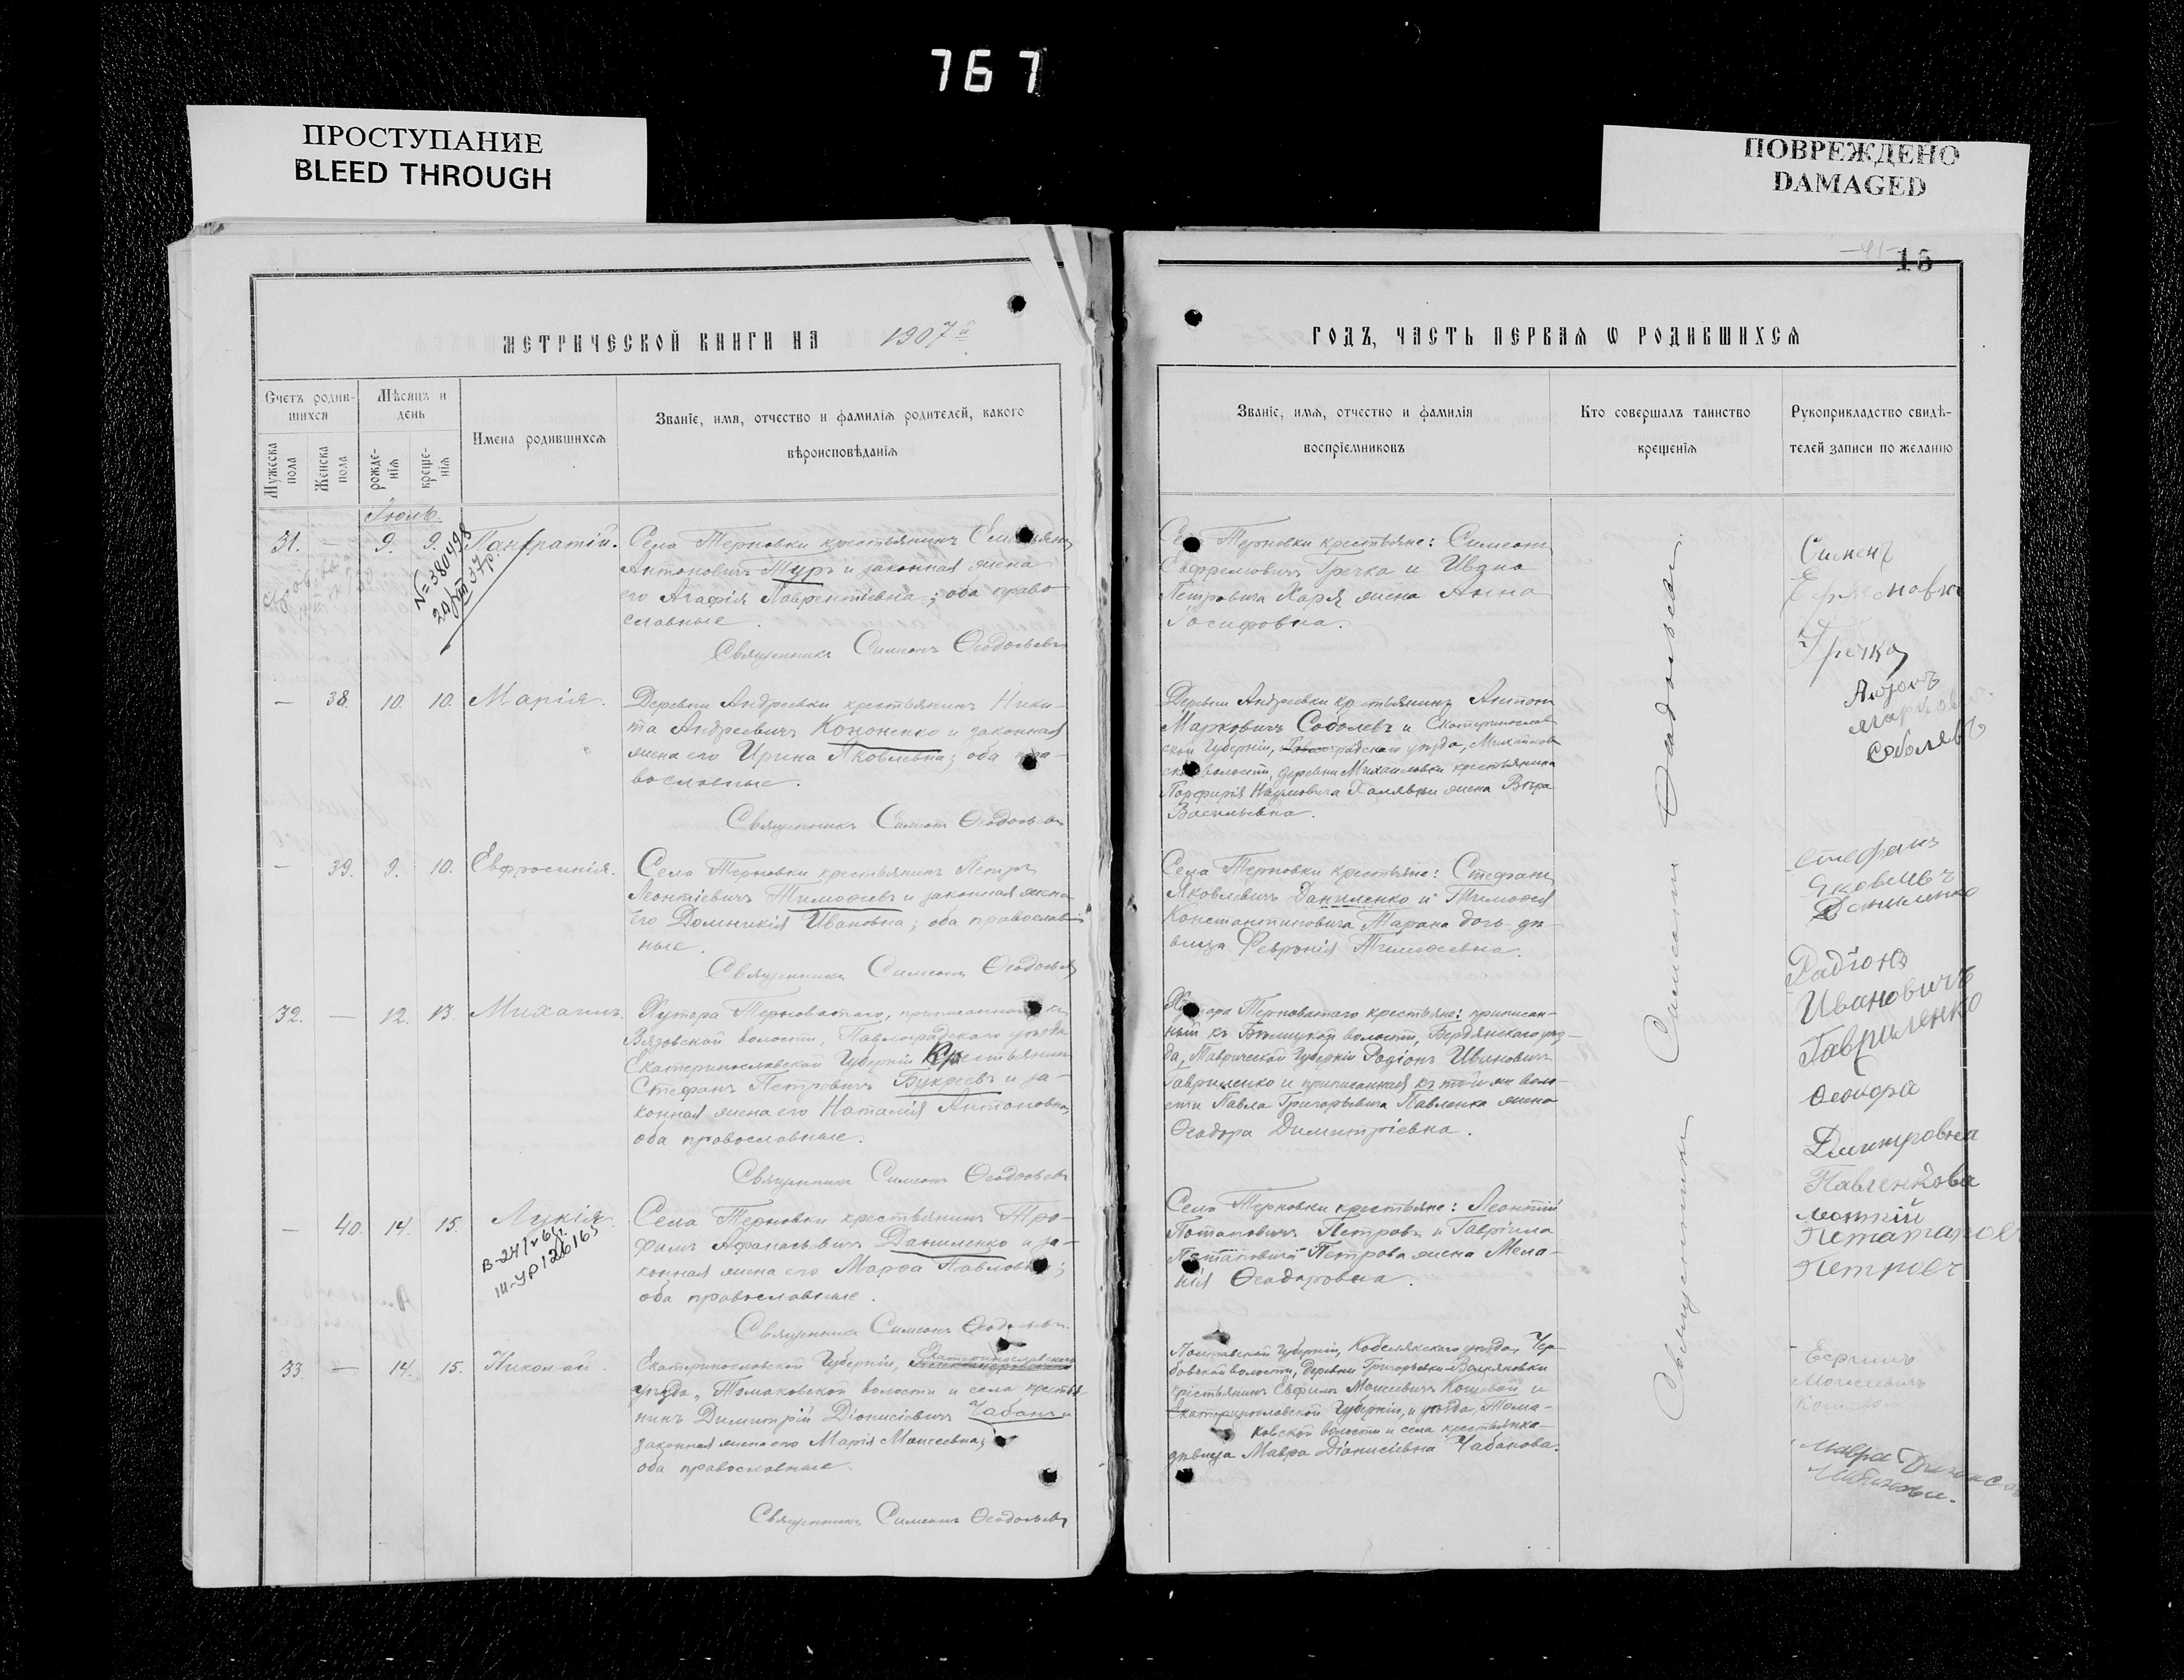 767
ПРОСТУПАНИЕ
BLEED THROUGH
ПОВРЕЖДЕНО
DAMAGED
-41-
15
МЕТРИЧЕСКОЙ КНИГИ НА 1907й
Счетъ родив-
шихся
Мѣсяцъ и
день
Мужеска
пола
Женска
пола
рожде-
нія
креще-
нія
Имена родившихся
Званіе, имя, отчество и фамилія родителей, какого
вѣроисповѣданія
Іюль.
31. — 9. 9. Панкратій.
N=380498
Села Терновки крестьянинъ
Антоновичъ Туръ и законная жена
его Агафія Лаврентіевна; оба право
славные.
Священникъ Симеонъ Ѳеодосьевъ
— 38. 10. 10. Марія.
Деревни Андреевки крестьянинъ Ники-
та Андреевичъ Кононенко и законная
жена его Ирина Яковлевна; оба пра-
вославные.
Священникъ Симеонъ Ѳеодосьевъ
— 39. 9. 10. Евфросинія.
Села Терновки крестьянинъ Петръ
Леонтіевичъ Тимоѳеевъ и законная жена
его Домникія Ивановна; оба православ
ные.
Священникъ Симеонъ Ѳеодосьевъ
32. — 12. 13. Михаилъ.
Хутора Терноватаго, приписанный къ
Вязовской волости, Павлоградскаго уѣзда
Екатеринославской Губерніи Крестьянинъ
Стефанъ Петровичъ Букреевъ и за-
конная жена его Наталія Антоновна,
оба православные.
Священникъ Симеонъ Ѳеодосьевъ
— 40. 14. 15. Лукія.
В-24/V 6
III-УР 126165
Села Терновки крестьянинъ Тро-
фимъ Афанасьевичъ Даниленко и за-
конная жена его Марѳа Павловна;
оба православные.
Священникъ Симеонъ Ѳеодосьевъ
33. — 14. 15. Николай.
Екатеринославской Губерніи, Екатеринославскаго
уѣзда, Томаковской волости и села крестья-
нинъ Димитрій Діонисіевичъ Чабанъ и
законная жена его Марія Моисеевна;
оба православные.
Священникъ Симеонъ Ѳеодосьевъ
ГОДЪ, ЧАСТЬ ПЕРВАЯ Ѡ РОДИВШИХСЯ
Званіе, имя, отчество и фамилія
воспріемниковъ
Кто совершалъ таинство
крещенія
Рукоприкладство свидѣ-
телей записи по желанію
Села Терновки крестьяне: Симеонъ
Евфремовичъ Гречка и Ивана
Петровича Харя жена Анна
Іосифовна.
Деревни Андреевки крестьянинъ Антонъ
Марковичъ Соболевъ и Екатеринослав
ской Губерніи, уѣзда,
волости, деревни Михайловки крестьянина
Порфирія Наумовича жена Вѣра
Васильевна.
Села Терновки крестьяне: Стефанъ
Яковлевичъ Даниленко и Тимоѳея
Константиновича Марана дочь дѣ-
вица Февронія Тимоѳеевна.
Хутора Терноватаго крестьяне: приписан-
ный къ волости, Бердянскаго уѣз-
да, Таврической Губерніи Родіонъ Ивановичъ
Гавриленко и приписанная къ той же воло-
сти Павла Григорьевича Павленка жена
Ѳеодора Димитріевна.
Села Терновки крестьяне: Леонтій
Потаповичъ Петровъ и Гавріила
Потаповича Петрова жена Мела-
нія Ѳеодоровна.
Полтавской Губерніи, Кобелякскаго уѣзда,
волости, деревни
крестьянинъ Евфимъ Моисеевичъ Кошевой и
Екатеринославской Губерніи, и уѣзда, Тома-
ковской волости и села крестьянка-
дѣвица Мавра Діонисіевна Чабанова.
Священникъ Симеонъ Ѳеодосьевъ.
Сименъ
Гречка
Антонъ
Соболевъ
Стефанъ
Яковлевъ
Даниленко
Радіонъ
Ивановичъ
Гавриленко
Ѳеодора
Дмитровна
Павленкова
Леонтій
Петровъ
Моисеевичъ
Мавра